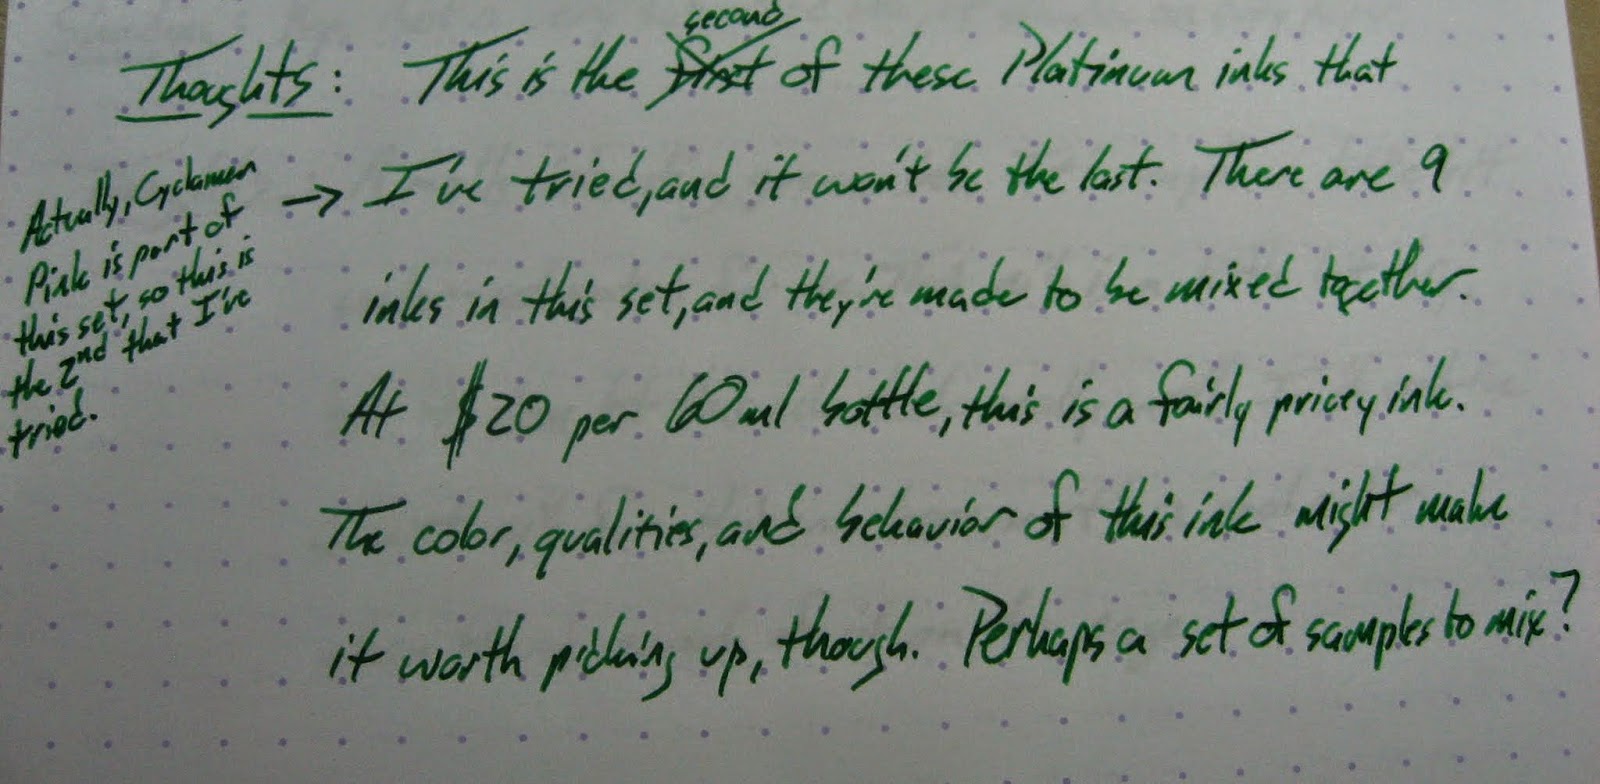 second
Thoughts: This is the first of these Platinum inks that
I've tried, and it won't be the last. There are 9
inks in this set, and they're made to be mixed together.
At $20 per 60ml bottle, this is a fairly pricey ink.
The color, qualities, and behavior of this ink might make
it worth picking up, though. Perhaps a set of samples to mix?
Actually, Cyclamen →
Pink is part of
this set, so this is
the 2nd that I've
tried.